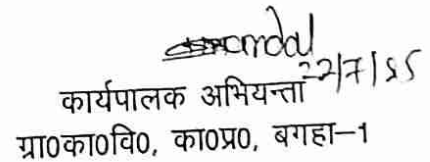 22/7/25
कार्यपालक अभियन्ता
ग्रा0का0वि0, का0प्र0, बगहा-1